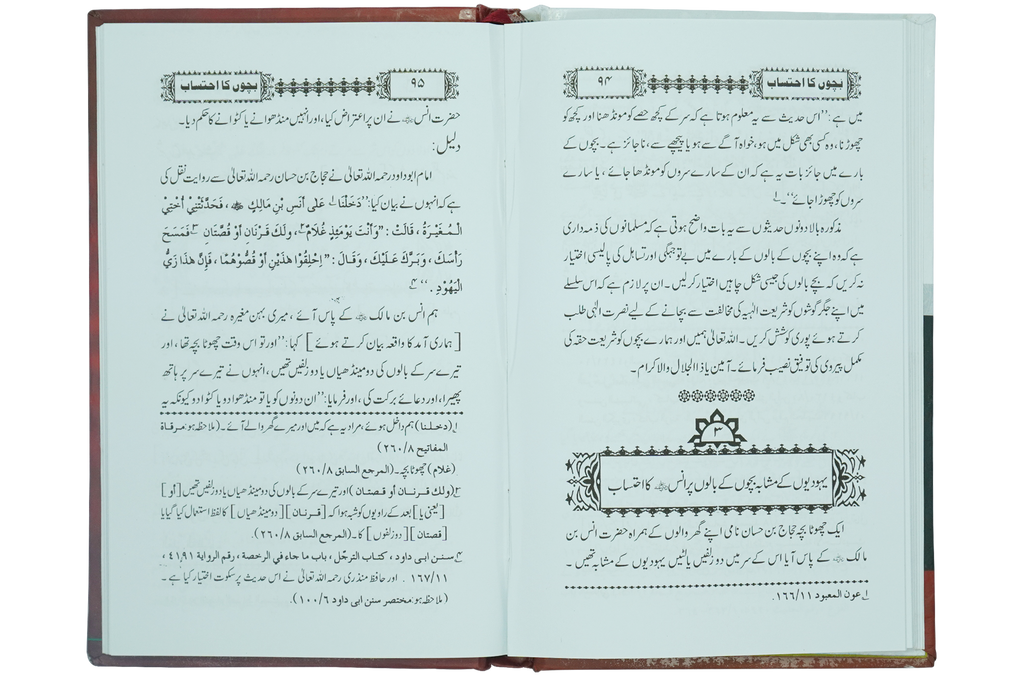 بچوں کا احتساب
۹۴
میں ہے: ’’اس حدیث سے یہ معلوم ہوتا ہے کہ سر کے کچھ حصے کو مونڈھنا اور کچھ کو
چھوڑنا، وہ کسی بھی شکل میں ہو، خواہ آگے سے ہو یا پیچھے سے، ناجائز ہے۔ بچوں کے
بارے میں جائز بات یہ ہے کہ ان کے سارے سروں کو مونڈھا جائے، یا سارے
سروں کو چھوڑا جائے‘‘۔۱
مذکورہ بالا دونوں حدیثوں سے یہ بات واضح ہوتی ہے کہ مسلمانوں کی ذمہ داری
ہے کہ وہ اپنے بچوں کے بالوں کے بارے میں بے توجہگی اور تساہل کی پالیسی اختیار
نہ کریں کہ بچے بالوں کی جیسی شکل چاہیں اختیار کر لیں۔ ان پر لازم ہے کہ اس سلسلے
میں اپنے جگر گوشوں کو شریعت الٰہیہ کی مخالفت سے بچانے کے لیے نصرت الٰہی طلب
کرتے ہوئے پوری کوشش کریں۔ اللہ تعالیٰ ہمیں اور ہمارے بچوں کو شریعت حقہ کی
مکمل پیروی کی توفیق نصیب فرمائے۔ آمین یا ذا الجلال والاکرام۔
۳
یہودیوں کے مشابہ بچوں کے بالوں پر انس رضی اللہ عنہ کا احتساب
ایک چھوٹا بچہ حجاج بن حسان نامی اپنے گھر والوں کے ہمراہ حضرت انس بن
مالک رضی اللہ عنہ کے پاس آیا اس کے سر میں دو زلفیں یا لٹیں یہودیوں کے مشابہ تھیں۔
۱ عون المعبود ۱۱/۱۶۶.
بچوں کا احتساب
۹۵
حضرت انس رضی اللہ عنہ نے ان پر اعتراض کیا، اور انہیں منڈھوانے یا کٹوانے کا حکم دیا۔
دلیل:
امام ابوداود رحمہ اللہ تعالیٰ نے حجاج بن حسان رحمہ اللہ تعالیٰ سے روایت نقل کی
ہے کہ انہوں نے بیان کیا: ’’دَخَلْنَا۱ عَلَى أَنَسِ بْنِ مَالِكٍ رضی اللہ عنہ ، فَحَدَّثَتْنِيْ أُخْتِيْ
الْمُغَيْرَةُ ، قَالَتْ : ”وَأَنْتَ يَوْمَئِذٍ غُلَامٌ۲، وَلَكَ قَرْنَانِ أَوْ قُصَّتَانِ ۳ فَمَسَحَ
رَأْسَكَ ، وَبَرَّكَ عَلَيْكَ ، وَقَالَ : ”اِحْلِقُوْا هٰذَيْنِ أَوْ قُصُّوْهُمَا ، فَإِنَّ هٰذَا زَيُّ
الْيَهُوْدِ . ‘‘ ۴
ہم انس بن مالک رضی اللہ عنہ کے پاس آئے، میری بہن مغیرہ رحمہ اللہ تعالیٰ نے
[ہماری آمد کا واقعہ بیان کرتے ہوئے] کہا: ’’اور تو اس وقت چھوٹا بچہ تھا، اور
تیرے سر کے بالوں کی دو مینڈھیاں یا دو زلفیں تھیں، انہوں نے تیرے سر پر ہاتھ
پھیرا، اور دعائے برکت کی، اور فرمایا: ’’ان دونوں کو یا تو منڈھوا دو یا کٹوا دو کیونکہ یہ
۱ (دخلنا) ہم داخل ہوئے، مراد یہ ہے کہ میں اور میرے گھر والے آئے۔ (ملاحظہ ہو: مرقاة
المفاتيح ۸/۲۶۰)
(غلام) چھوٹا بچہ۔ (المرجع السابق ۸/۲۶۰)
۳ (ولك قرنان أو قصتان) اور تیرے سر کے بالوں کی دو مینڈھیاں یا دو زلفیں تھیں [أو]
[یعنی یا] بعد کے راویوں کو شبہ ہوا کہ [قرنان] [دو مینڈھیاں] کا لفظ استعمال کیا گیا یا
[قصتان] [دو زلفوں] کا۔ (المرجع السابق ۸/۲۶۰).
۴ سنن ابی داود ، كتاب الترجّل ، باب ما جاء في الرخصة ، رقم الرواية ۴۱۹۱ ،
۱۱/۱۶۷ . اور حافظ منذری رحمہ اللہ تعالیٰ نے اس حدیث پر سکوت اختیار کیا ہے۔
(ملاحظہ ہو: مختصر سنن ابی داود ۶/۱۰۰).